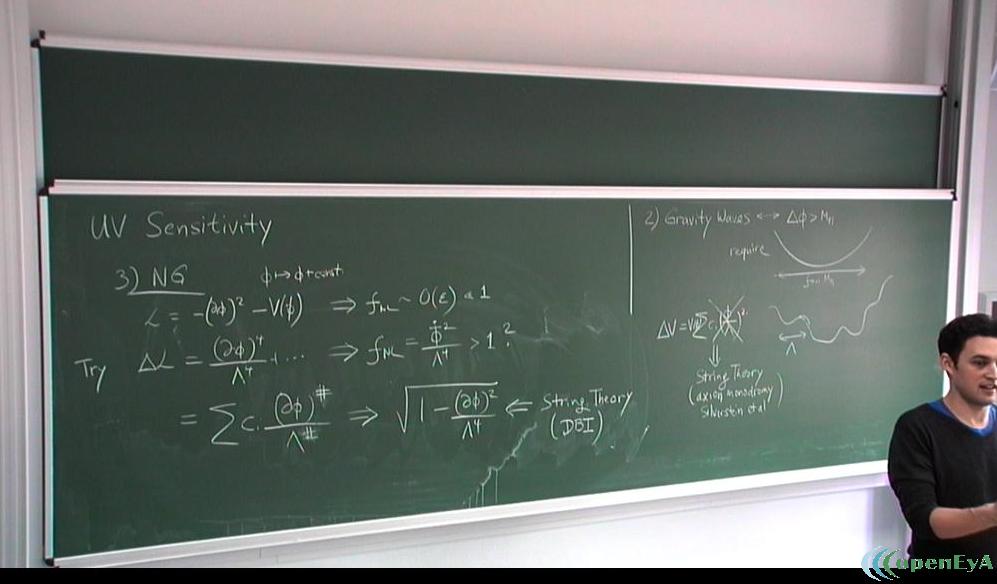 UV Sensitivity
3) NG φ ↦ φ + const
ℒ = -(∂φ)² - V(φ) ⇒ f_NL ~ O(ε) < 1
Try Δℒ = (∂φ)⁴/Λ⁴ + ... ⇒ f_NL = φ̇²/Λ⁴ > 1 ?
= Σ c. (∂φ)^#/Λ^# ⇒ √(1 - (∂φ)²/Λ⁴) ⇐ String Theory
(DBI)
2) Gravity Waves ↔ Δφ > M_Pl
require
ΔV = V
Λ
⇓
String Theory
(axion monodromy
Silverstein et al)
openEyA